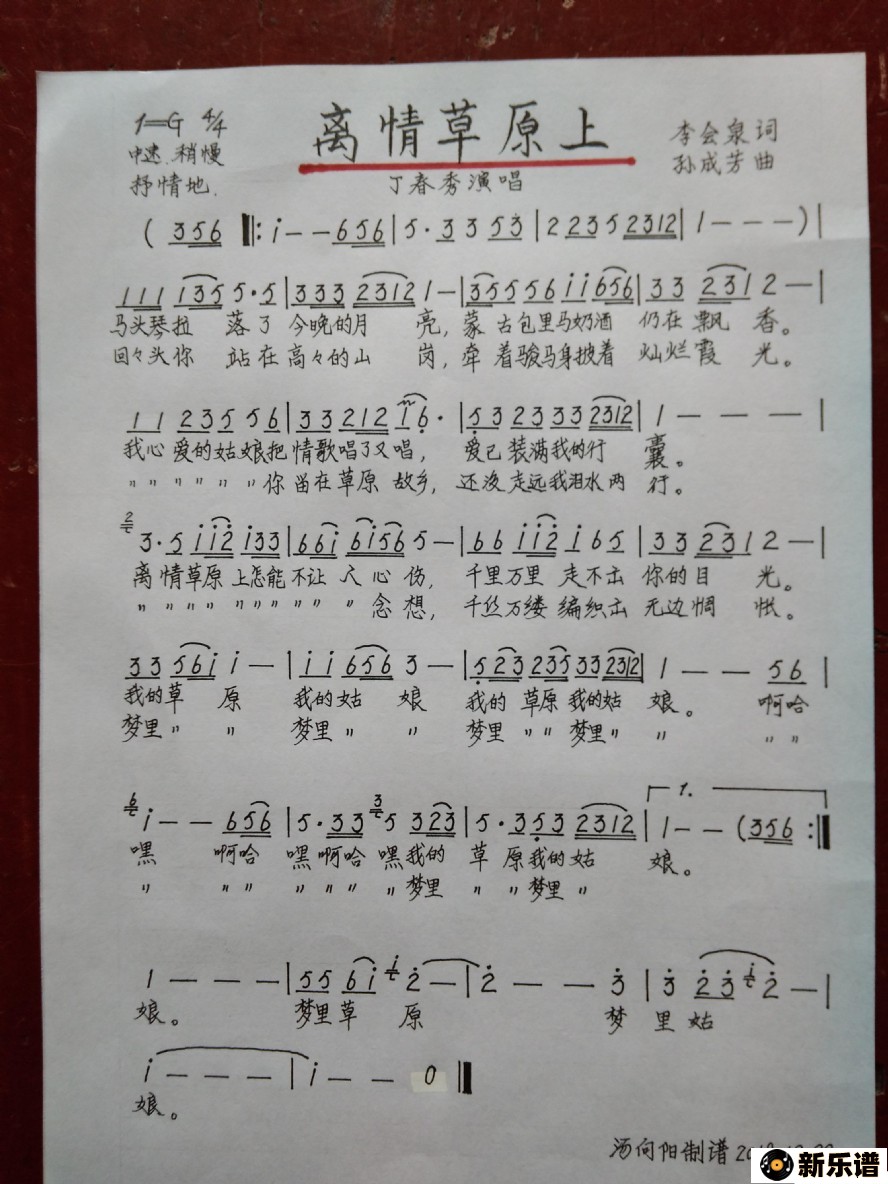 1=G 4/4
离情草原上
李会泉词
中速.稍慢
孙成芳曲
抒情地.
丁春秀演唱
( 356 ‖: i - - 656 | 5 · 3 3 53 | 2 235 2312 | 1 - - - ) |
111 135 5·5 | 333 2312 1 - | 35556 ii656 | 33 231 2 - |
马头琴拉 落了 今晚的月 亮,蒙 古包里马奶酒 仍在 飘 香。
回々头你 站在高々的山 岗,牵 着骏马身披着 灿烂霞 光。
11 235 56 | 33 212 16· | 53 233 33 2312 | 1 - - - |
我心 爱的姑娘把 情歌唱了又唱, 爱已 装满我的行 囊。
〃〃〃〃〃〃你 留在草原 故乡, 还没 走远我泪水两 行。
3·5 ii2 i33 | 66i 6i56 5 - | 66 ii2 i 65 | 33 231 2 - |
离情草原 上怎能 不让 人心伤, 千里万里 走不出 你的目 光。
〃〃〃〃 〃〃〃 〃〃 〃念想, 千丝万缕 编织出 无边惆 怅。
33 56i i - | ii 656 3 - | 523 235 33 2312 | 1 - - 56 |
我的草 原 我的姑 娘 我的 草原 我的姑 娘。 啊哈
梦里〃 〃 梦里〃 〃 梦里 〃〃 梦里〃 〃 〃〃
i - - 656 | 5·33 5 323 | 5·353 2312 | 1 - - (356 :‖
1.
嘿 啊哈 嘿啊哈 嘿我的 草 原我的姑 娘。
〃 〃〃 〃〃〃 〃梦里 〃 〃梦里〃
1 - - - | 55 6i 2 - | 2 - - 3 | 3 23 2 - |
娘。 梦里草 原 梦 里 姑
i - - - | i - - 0 ‖
娘。
汤向阳制谱
新乐谱